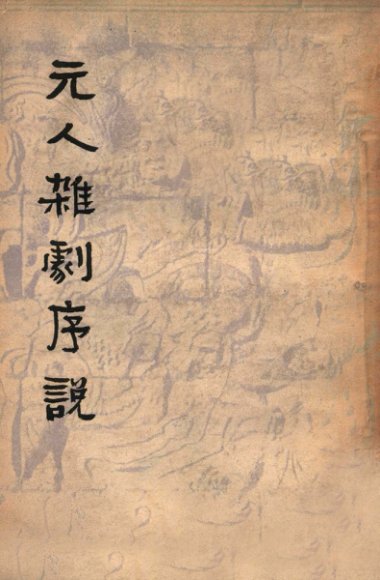 元人雜劇序說